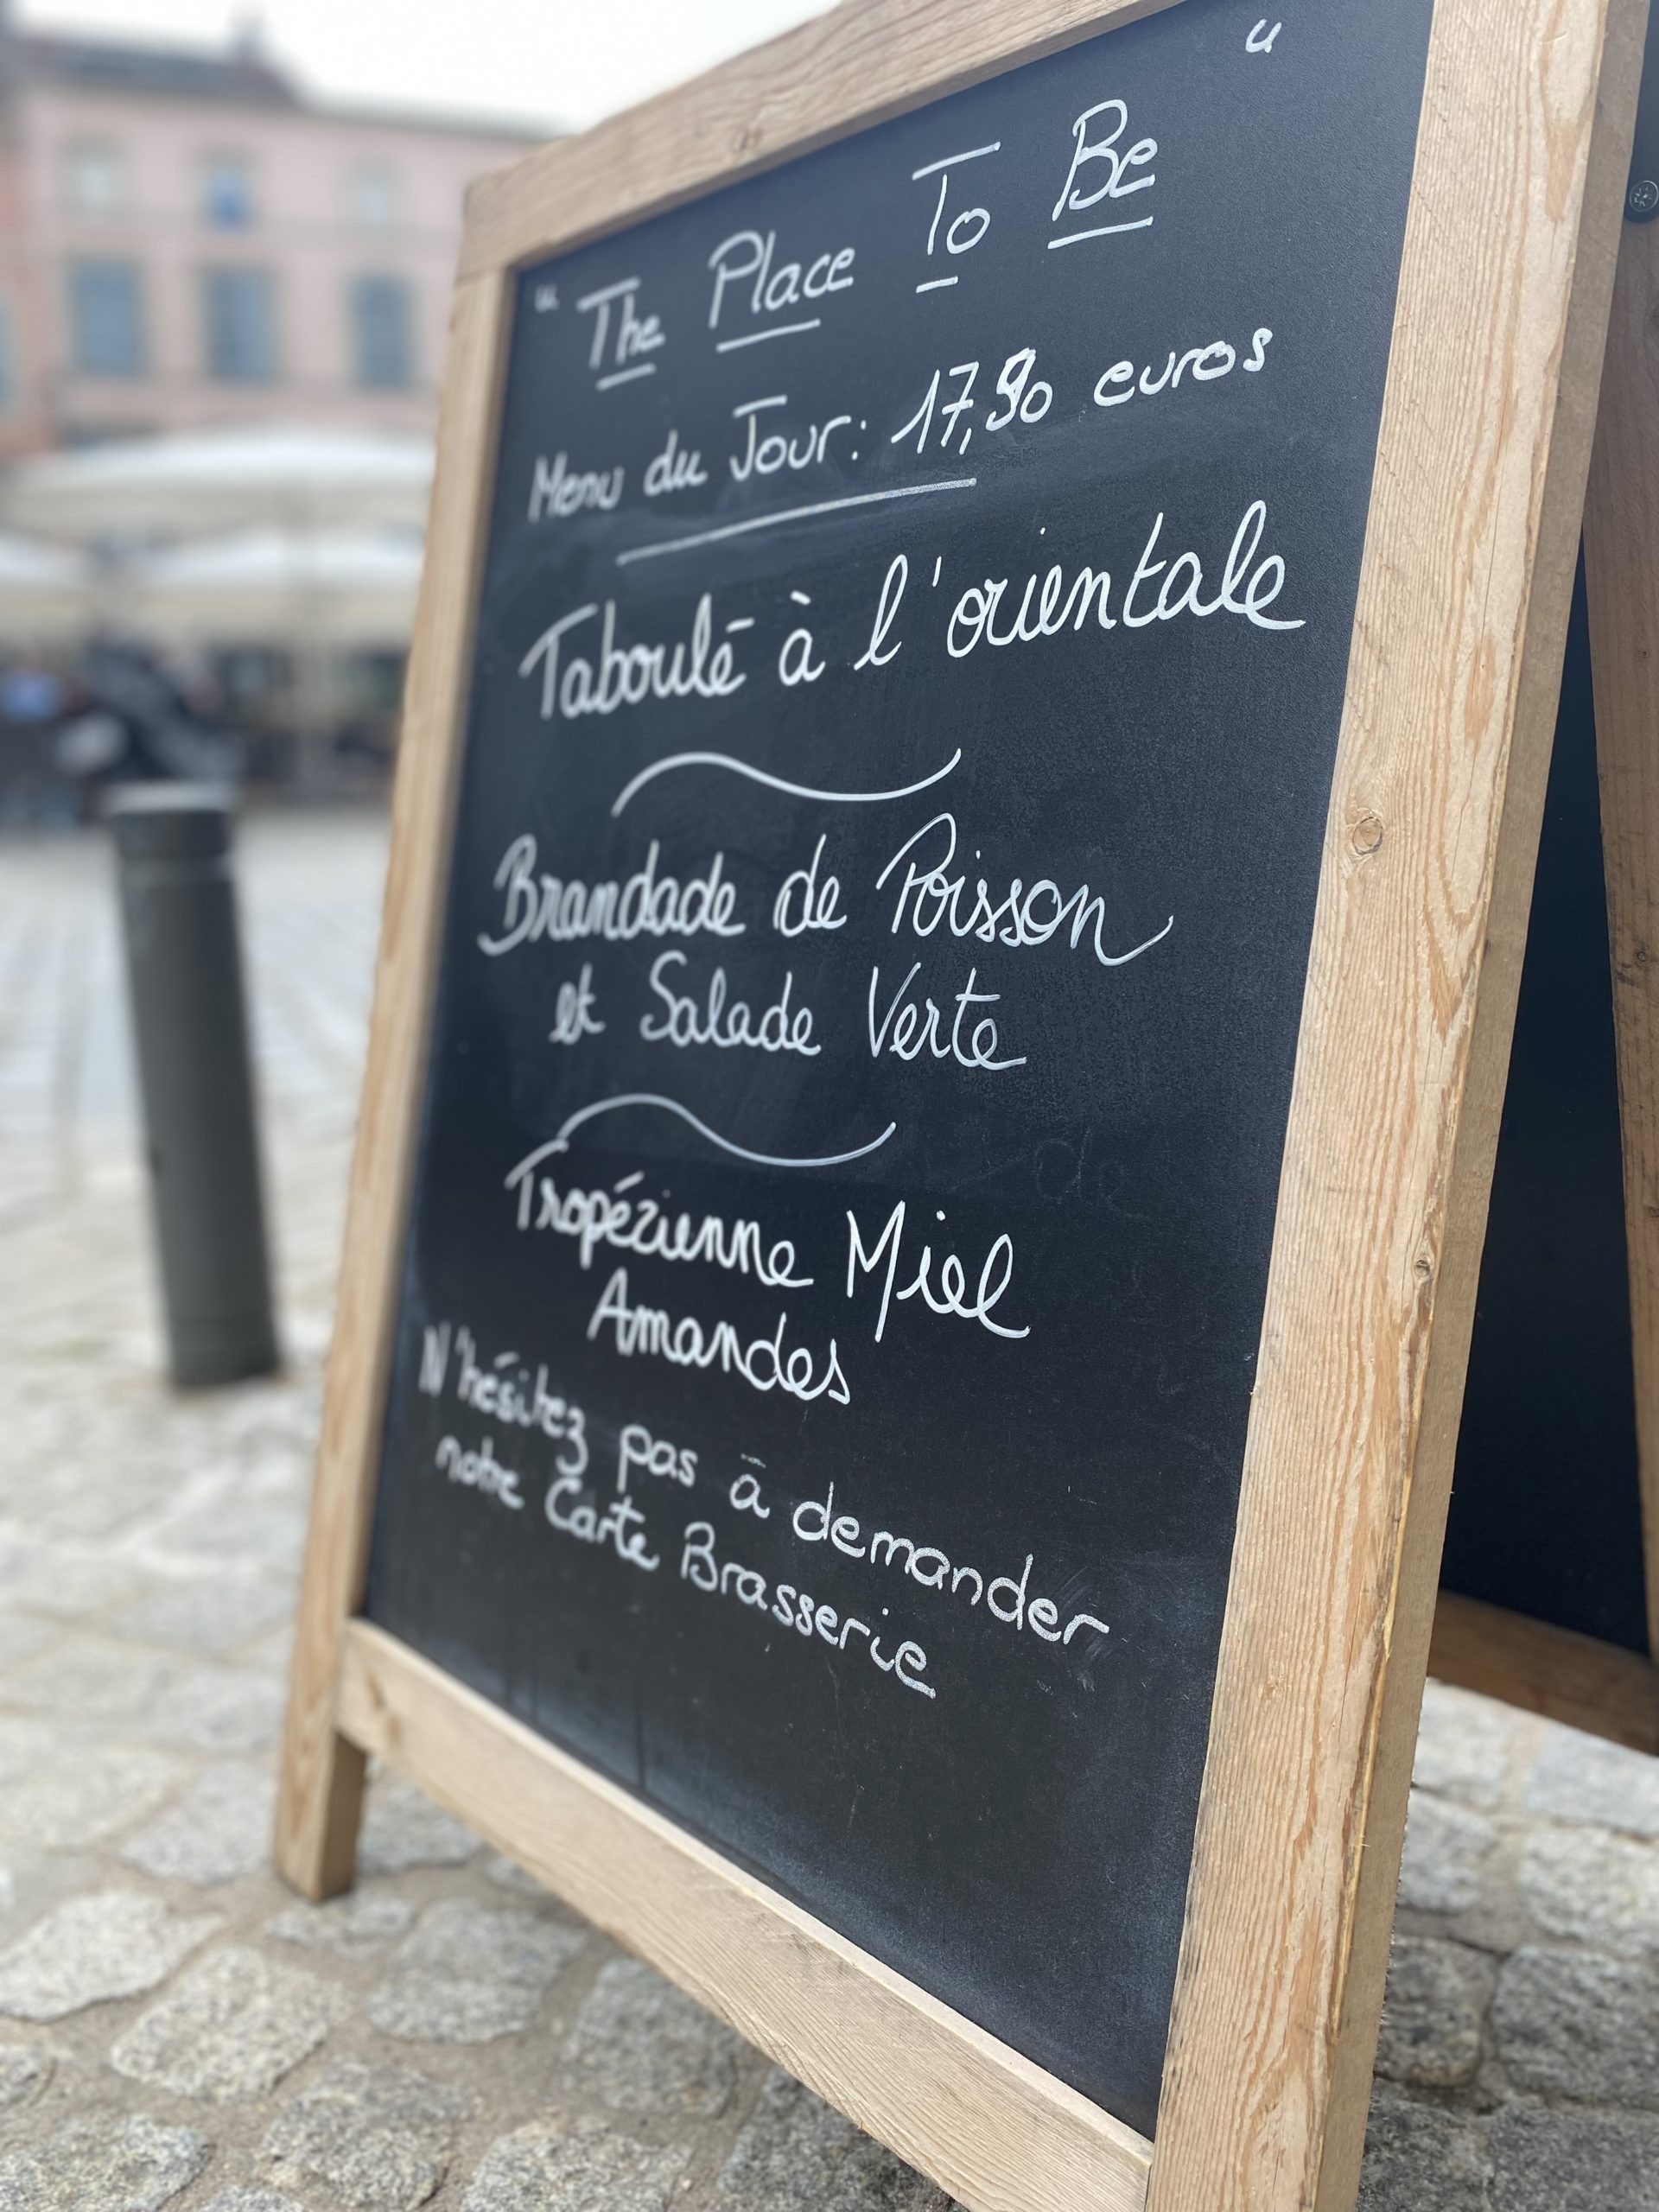 "The Place To Be"
Menu du Jour: 17,90 euros
Taboulé à l'orientale
Brandade de Poisson
et Salade Verte
Tropézienne Miel
Amandes
N'hésitez pas à demander
notre Carte Brasserie